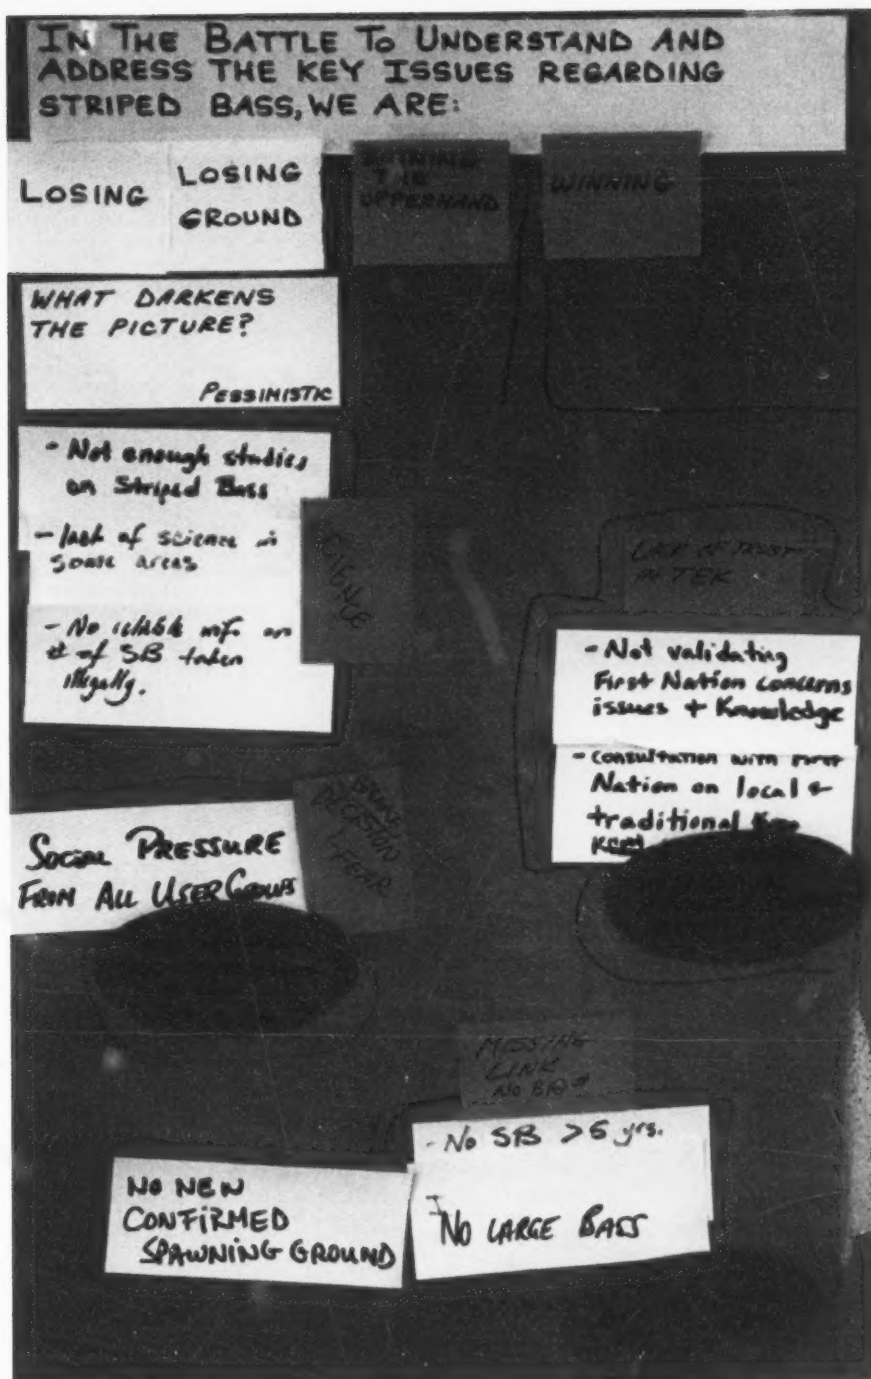 IN THE BATTLE TO UNDERSTAND AND
ADDRESS THE KEY ISSUES REGARDING
STRIPED BASS, WE ARE:
LOSING
LOSING
GROUND
GAINING
THE
UPPERHAND
WINNING
WHAT DARKENS
THE PICTURE?
PESSIMISTIC
- Not enough studies
on Striped Bass
- lack of science in
some areas
SCIENCE
- No reliable info on
# of SB taken
illegally.
LACK OF TRUST
IN TEK
- Not validating
First Nation concerns
issues + Knowledge
- CONSULTATION WITH FIRST
Nation on local +
traditional
SOCIAL PRESSURE
FROM ALL USER GROUPS
DECISION
FEAR
MISSING
LINK
NO BIG #
- No SB >5 yrs.
NO LARGE BASS
NO NEW
CONFIRMED
SPAWNING GROUND